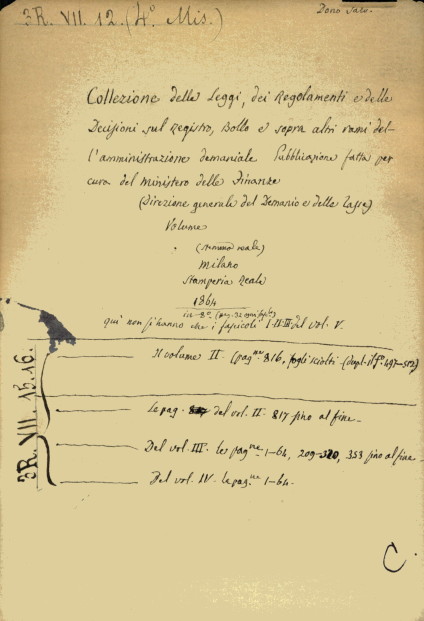 3R. VII. 12. (4° Mis.)
Dono
Collezione delle Leggi, dei Regolamenti e delle
Decisioni sul Registro, Bollo e sopra altri rami del-
l'amministrazione demaniale Pubblicazione fatta per
cura del Ministero delle Finanze
(Direzione generale del Demanio e delle Tasse)
Volume
Milano
Stamperia Reale
1864
in-8°
qui non si hanno che i fascicoli I-II-III del vol. V.
3R. VII. 15.16.
Il volume II (pagne 816, fogli sciolti (dupl. il f° 497-512)
Le pag. del vol. II 817 fino al fine
Del vol. III le pagne 1-64, 209-320, 353 fino al fine
Del vol. IV le pagne 1-64.
C.